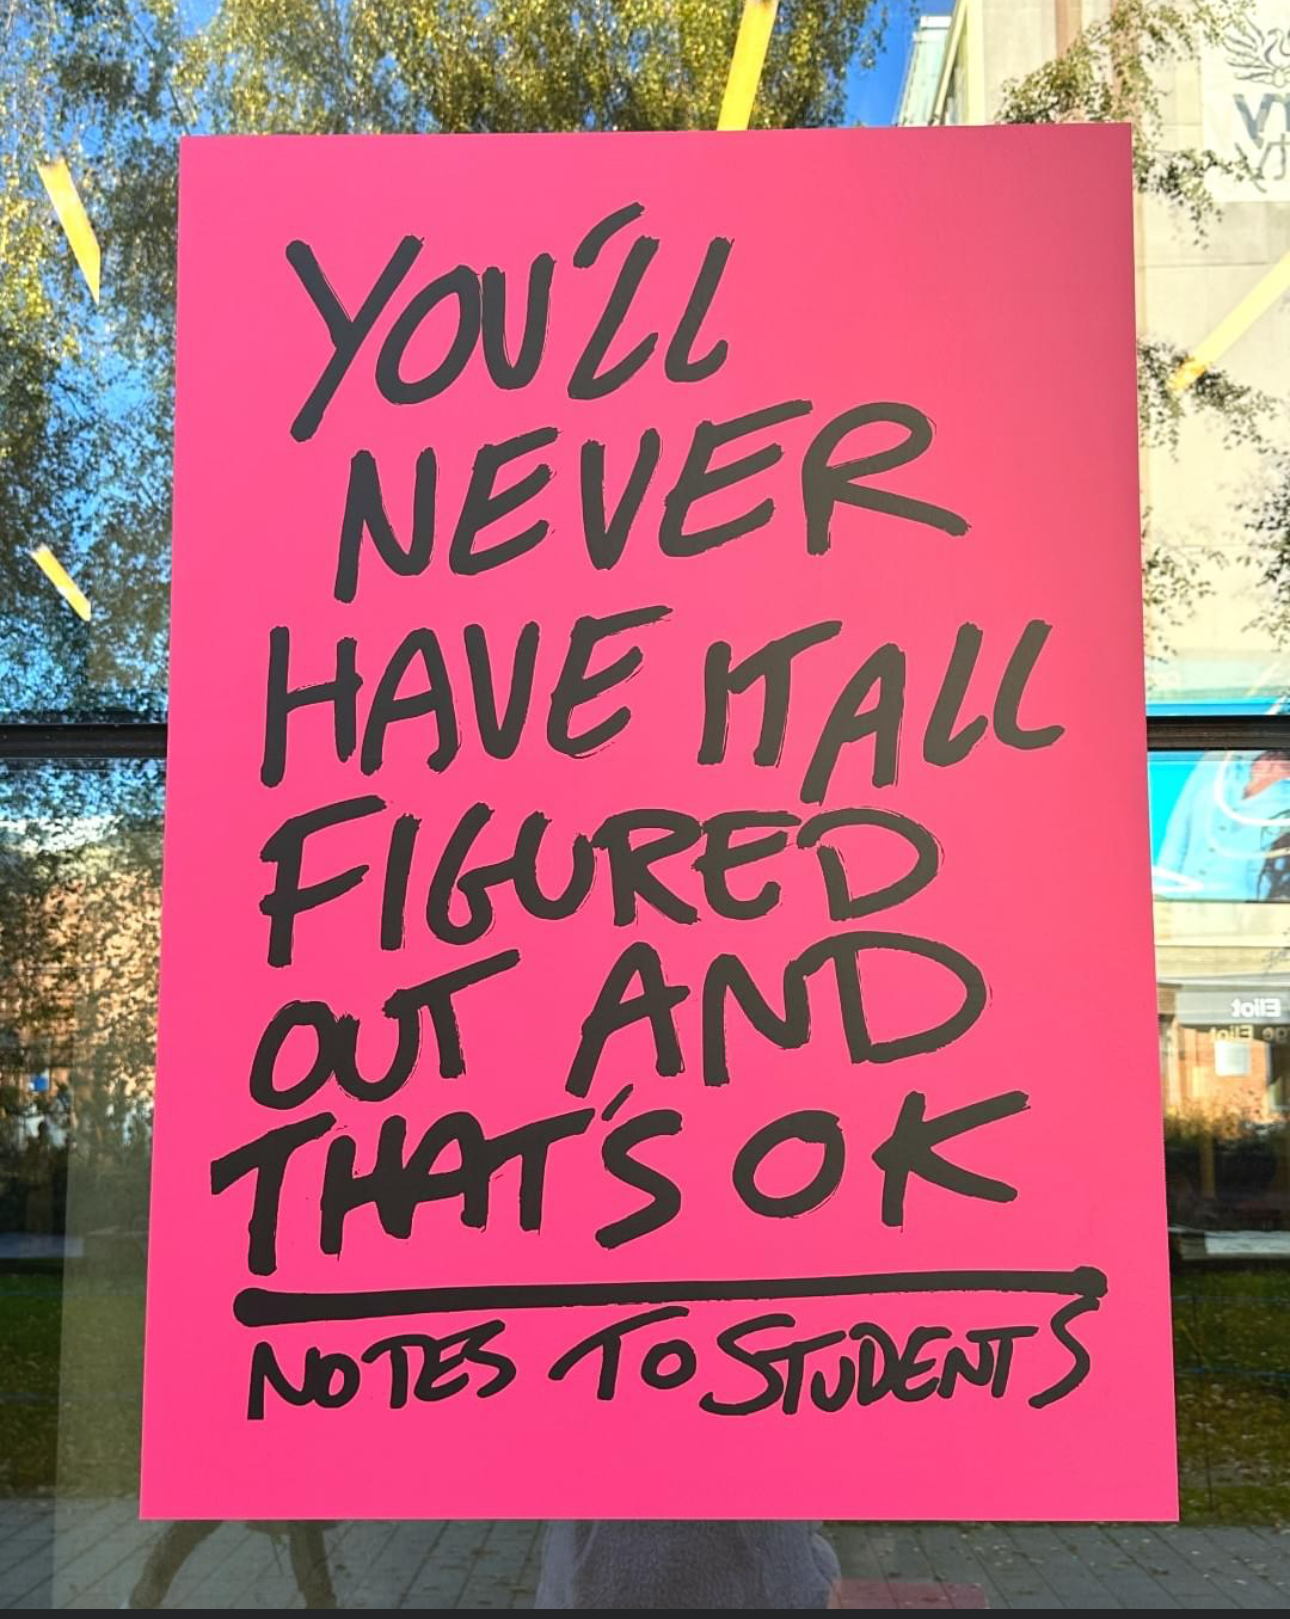 YOU'LL
NEVER
HAVE IT ALL
FIGURED
OUT AND
THAT'S OK
NOTES TO STUDENTS
Eliot
Eliot